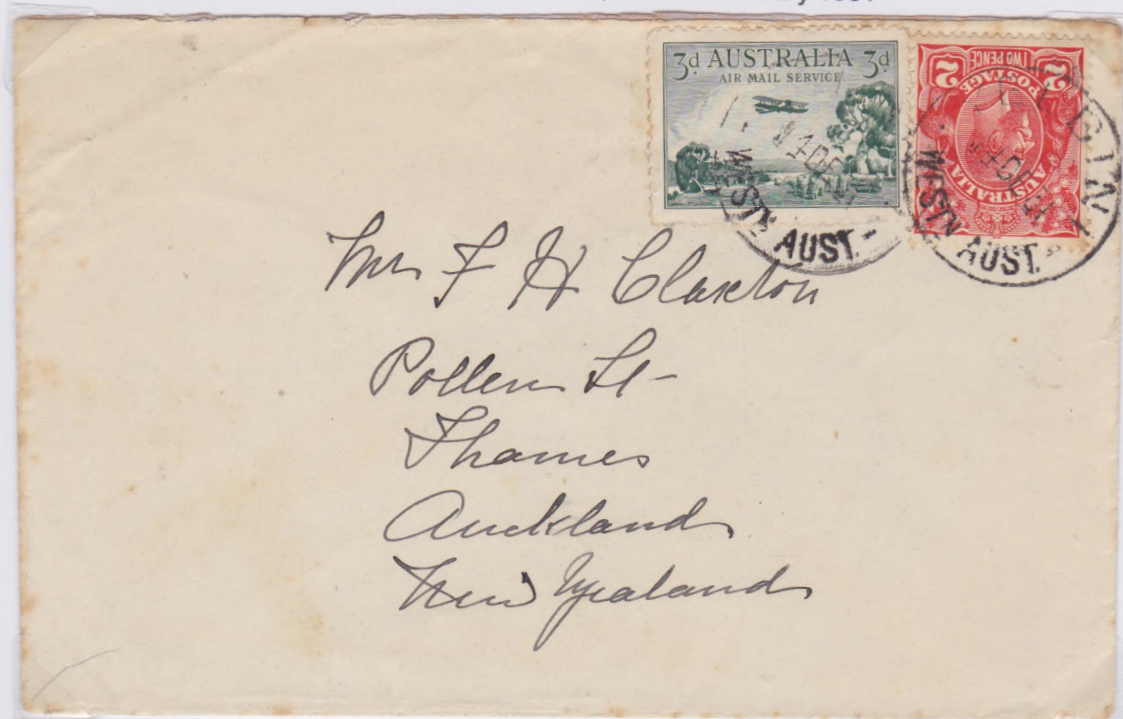 3d AUSTRALIA 3d
AIR MAIL SERVICE
2 2
TWO PENCE
POSTAGE
AUSTRALIA
WESTN AUST.
WESTN AUST.
Mrs F H Claxton
Pollen St
Thames
Auckland
New Zealand